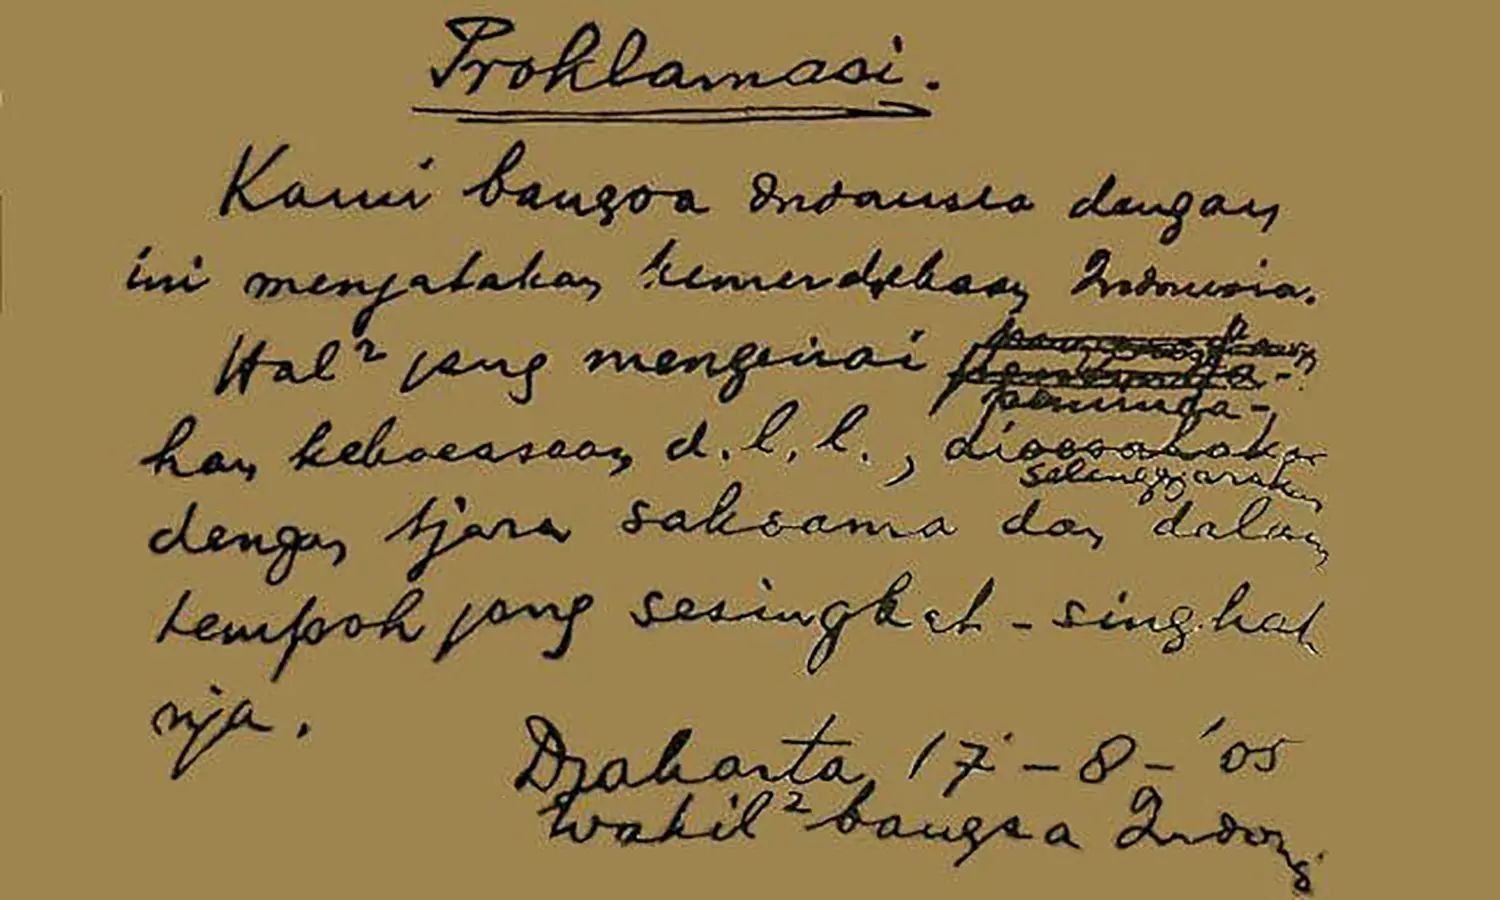 Proklamasi.
Kami bangsa Indonesia dengan
ini menjatakan kemerdekaan Indonesia.
Hal² jang mengenai
peminda-
han kekoeasaan d.l.l., dioesahakan
selenggarakan
dengan tjara saksama dan dalam
tempoh jang sesingkat-singkat
nja.
Djakarta, 17-8-'05
Wakil² bangsa Indong.